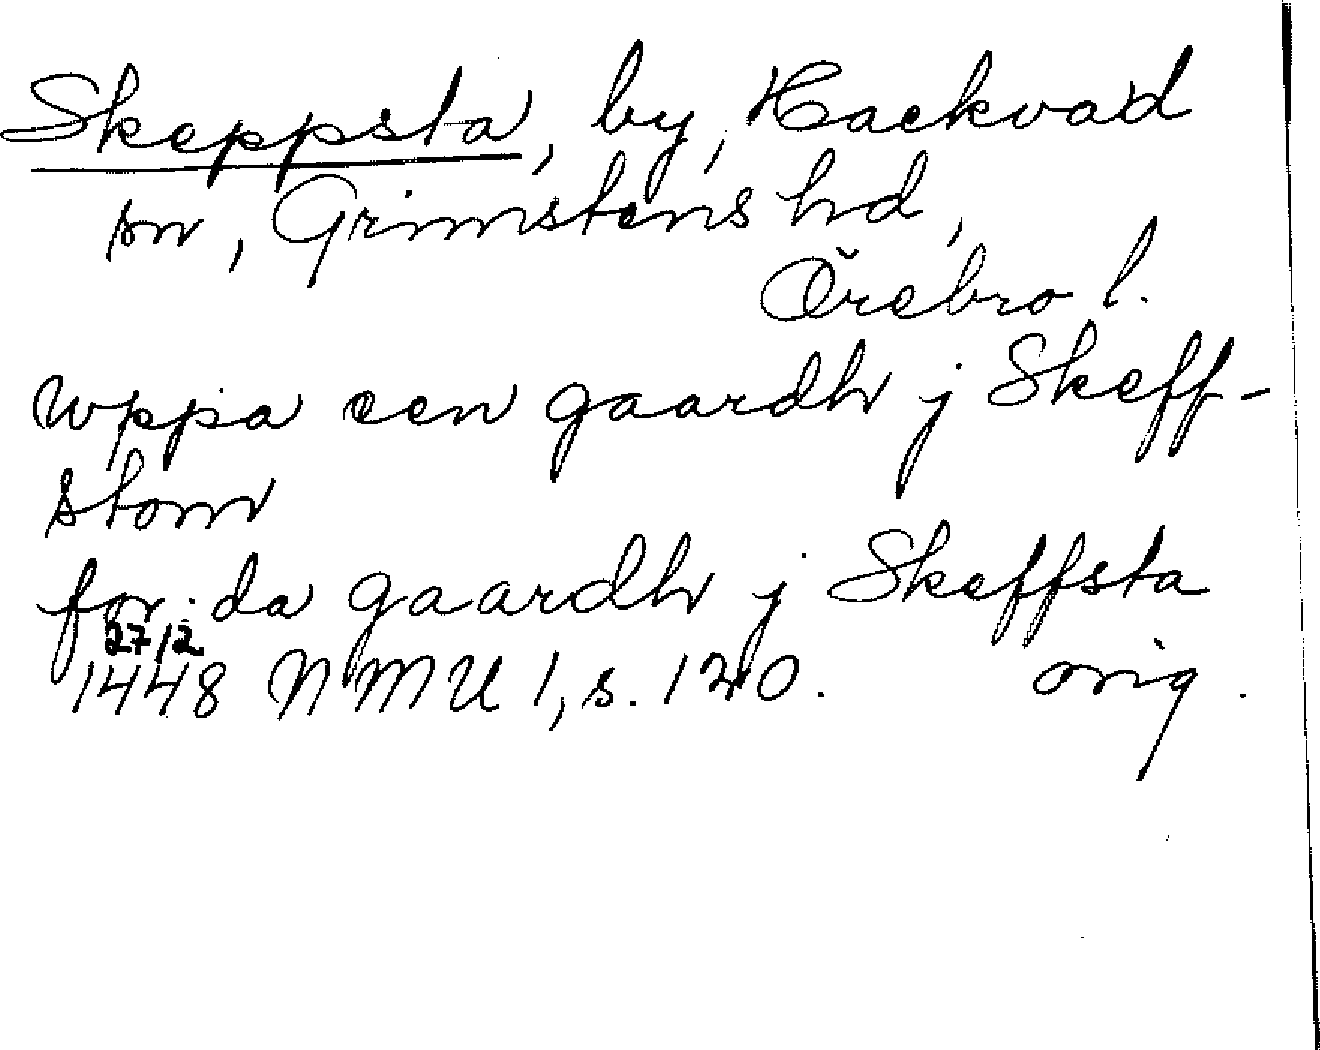 Skeppsta, by, Hackvad
sn, Grimstens hd,
Örebro l.
wppa een gaardh j Skeff-
stom
for:da gaardh j Skeffsta
27/12
1448 NMU 1, s. 120. orig.